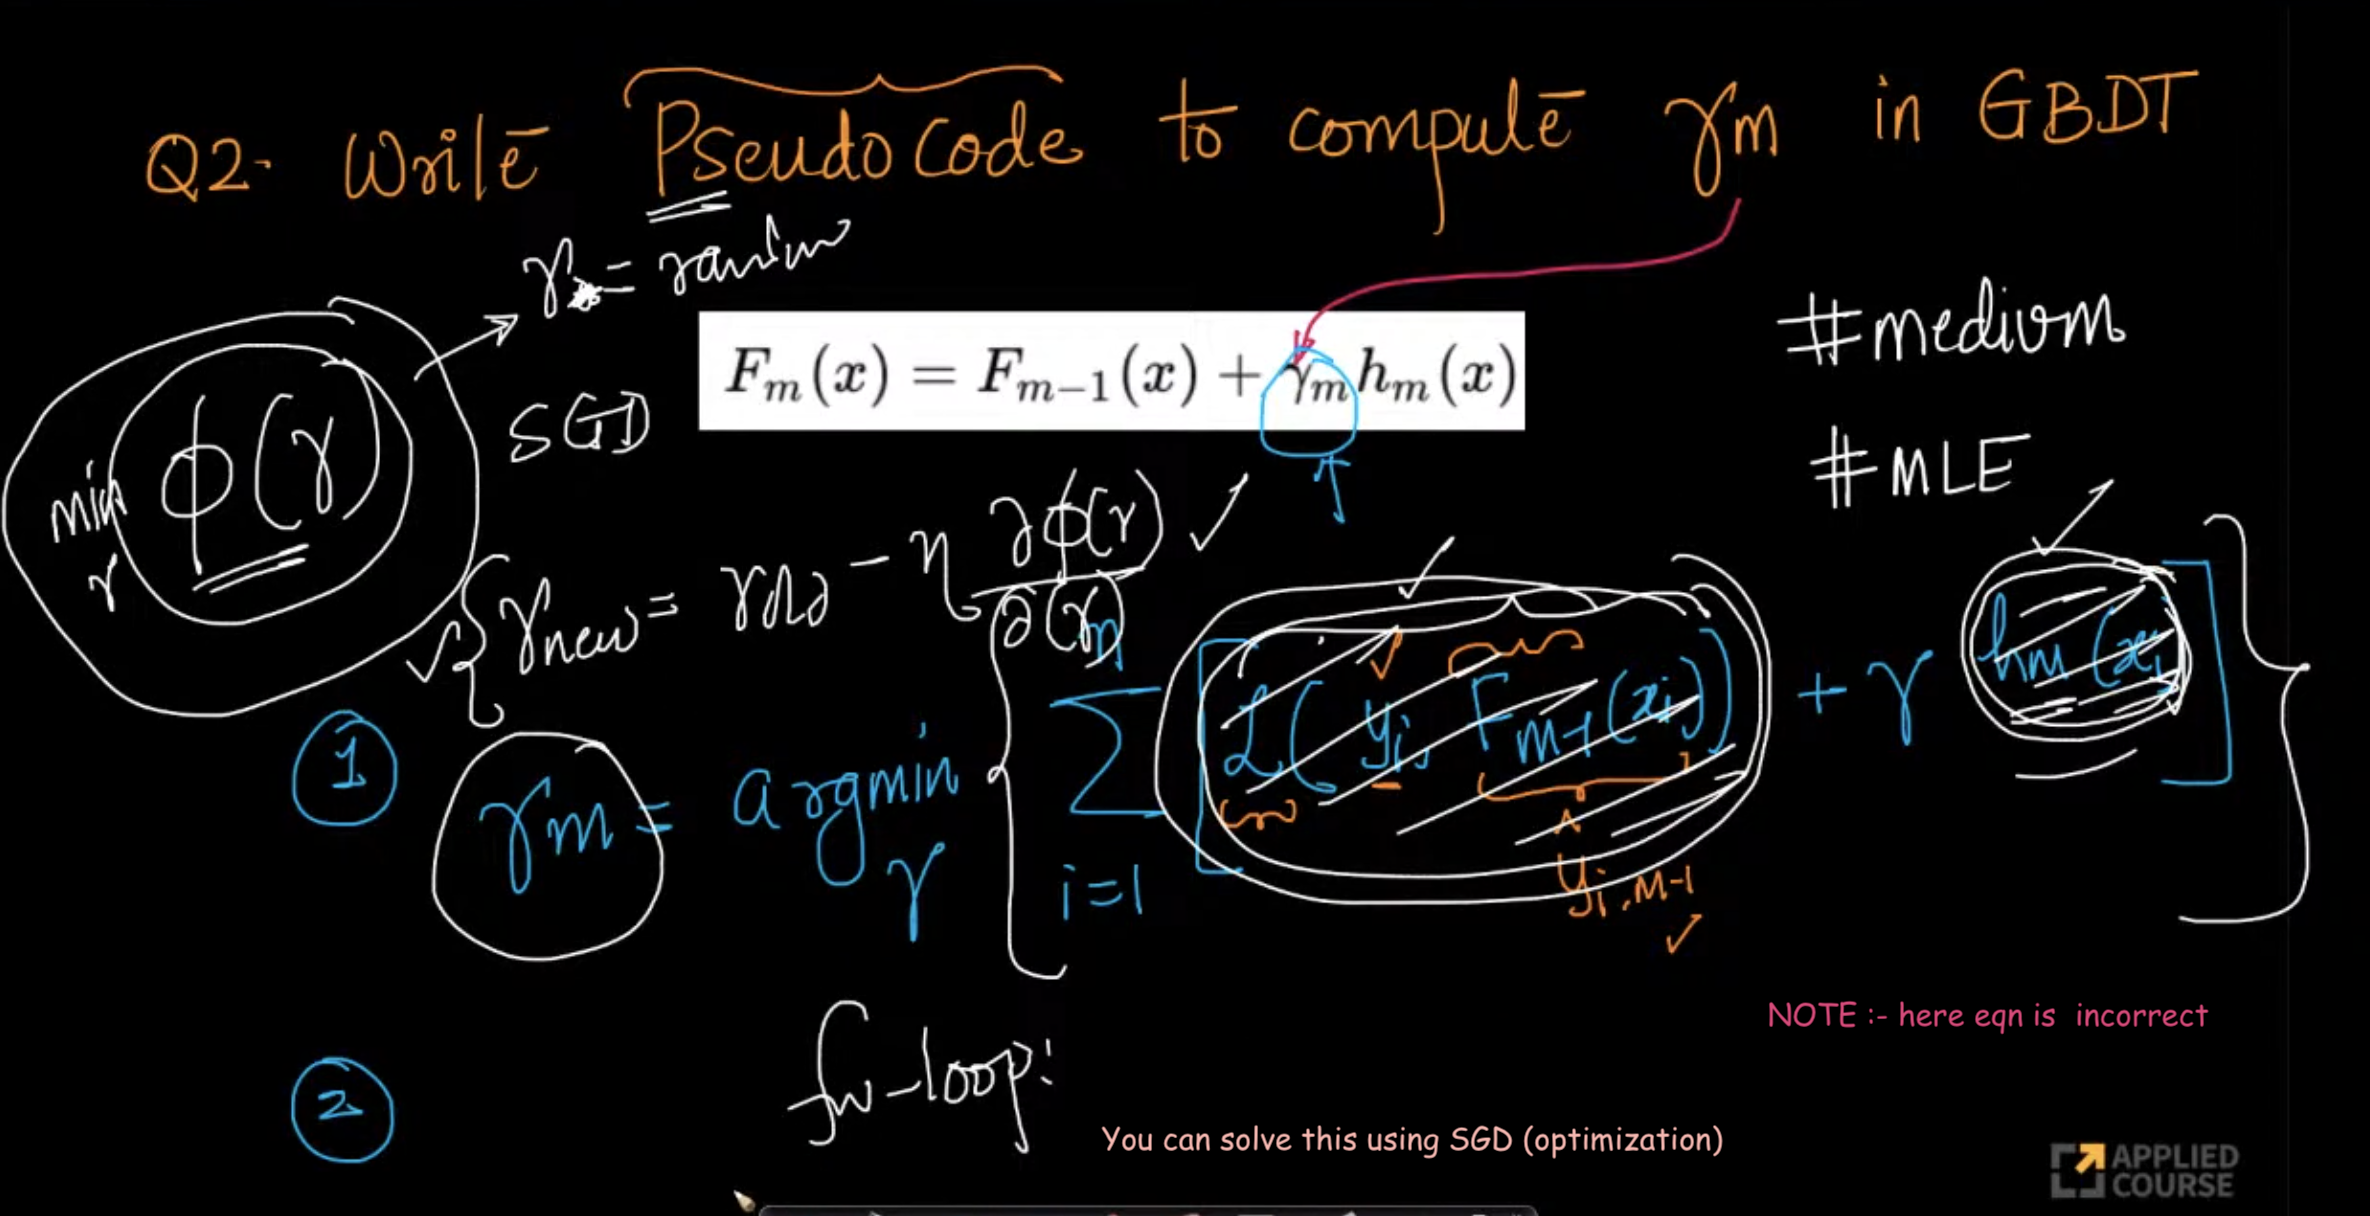 Q2. Write PseudoCode to compute γm in GBDT
γ = random
#medium
Fₘ(x) = Fₘ₋₁(x) + γₘhₘ(x)
min γ ϕ(γ)
SGD
#MLE
γnew = γold - η ∂ϕ(γ) / ∂(γ)
1
γm = argmin γ { n Σ i=1 [ L(yi, Fm-1(xi)) + γ hm(xi) ] }
ŷi,M-1
NOTE :- here eqn is incorrect
2
for-loop:
You can solve this using SGD (optimization)
APPLIED
COURSE